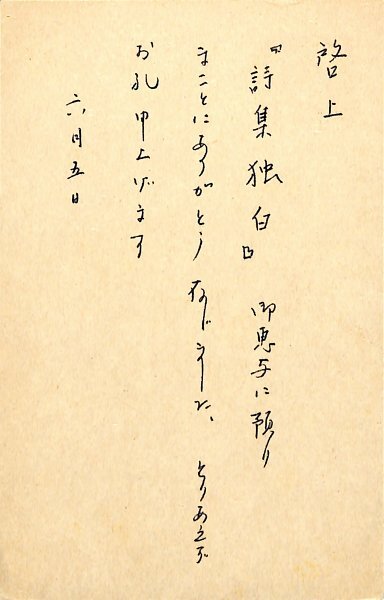 啓上
『詩集独白』 御恵与に預り
まことにありがとう存じました、 とりあえず
お礼申上げます
六月五日